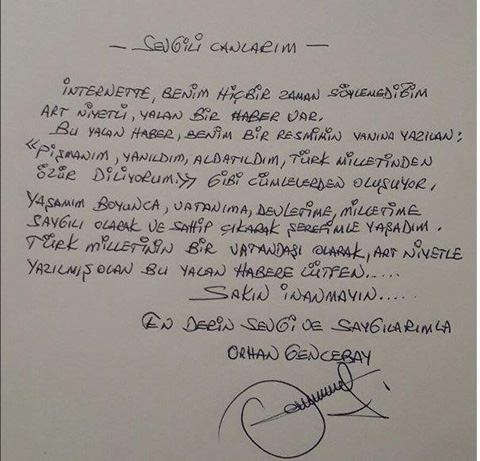 — SEVGİLİ CANLARIM —
İNTERNETTE, BENİM HİÇBİR ZAMAN SÖYLEMEDİĞİM
ART NİYETLİ, YALAN BİR HABER VAR.
BU YALAN HABER, BENİM BİR RESMİMİN YANINA YAZILAN:
«PİŞMANIM, YANILDIM, ALDATILDIM, TÜRK MİLLETİNDEN
ÖZÜR DİLİYORUM» GİBİ CÜMLELERDEN OLUŞUYOR.
YAŞAMIM BOYUNCA, VATANIMA, DEVLETİME, MİLLETİME
SAYGILI OLARAK VE SAHİP ÇIKARAK ŞEREFİMLE YAŞADIM.
TÜRK MİLLETİNİN BİR VATANDAŞI OLARAK, ART NİYETLE
YAZILMIŞ OLAN BU YALAN HABERE LÜTFEN.....
SAKIN İNANMAYIN.....
EN DERİN SEVGİ VE SAYGILARIMLA
ORHAN GENCEBAY